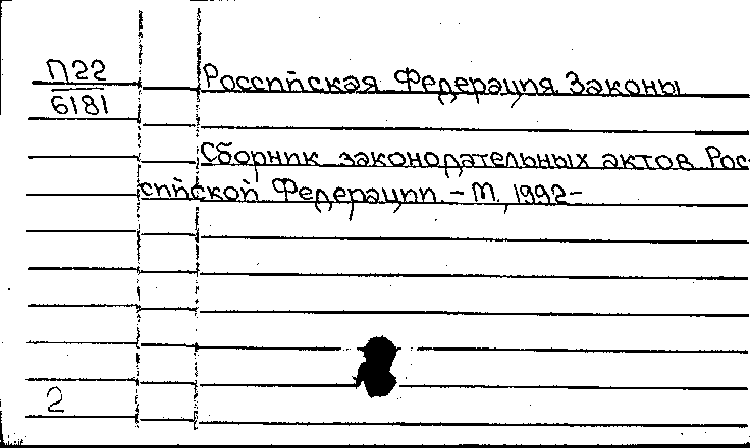 П22
6181
Российская Федерация. Законы
Сборник законодательных актов Рос-
сийской Федерации. – М., 1992–
2